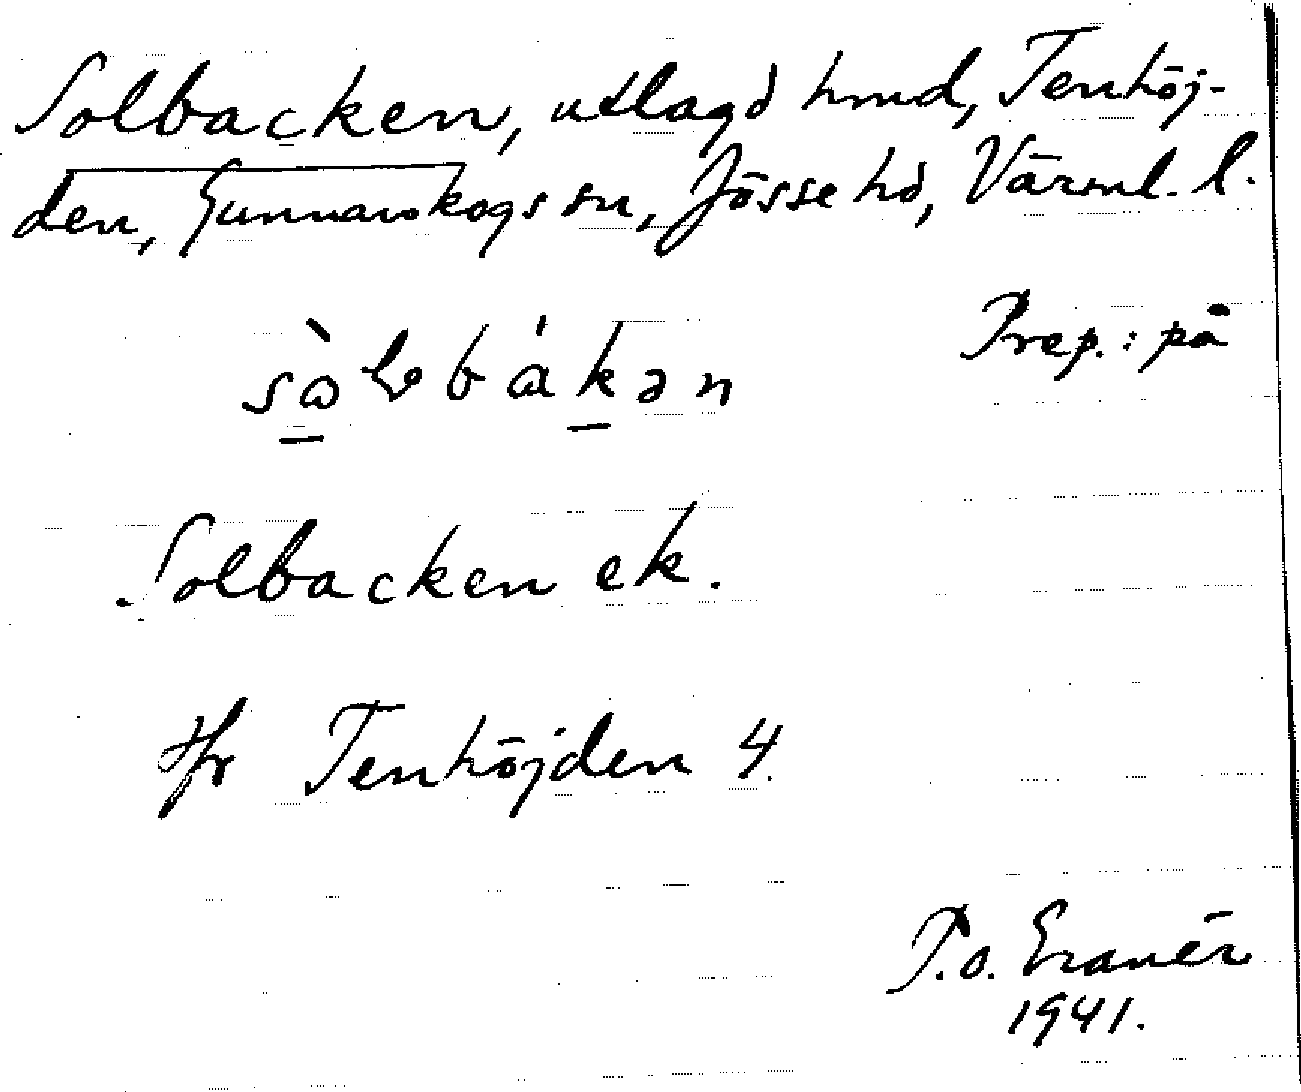 Solbacken, utlagd hmd, Tenhöj-
den, Gunnarskogs sn, Jösse hd, Värml. l.
Prep.: på
Solbacken ek.
Hfr Tenhöjden 4.
P.O.
1941.